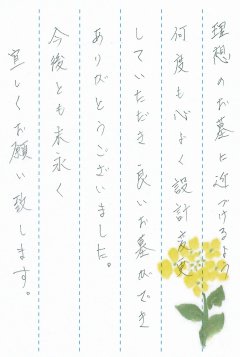 理想のお墓に近づけるよう
何度も心よく設計変更
していただき良いお墓ができ
ありがとうございました。
今後とも末永く
宜しくお願い致します。